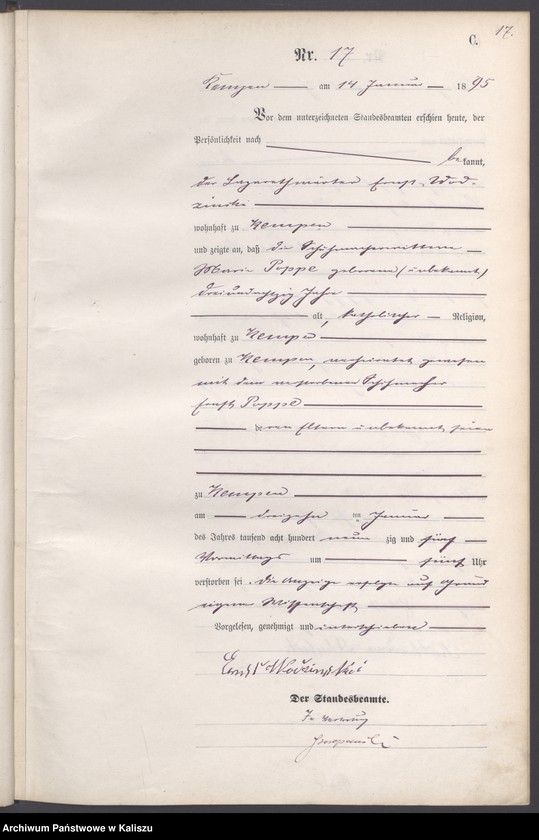 17.
C.
Nr. 17
Kempen am 14 Januar 1895
Vor dem unterzeichneten Standesbeamten erschien heute, der
Persönlichkeit nach
bekannt,
der Lazarethwärter Ernst Wod-
zinski
wohnhaft zu Kempen
und zeigte an, daß die Schuhmacherwittwe
Marie Poppe geborene (unbekannt)
dreiundachtzig Jahre
alt, katholischer Religion,
wohnhaft zu Kempen
geboren zu Kempen, verheiratet gewesen
mit dem verstorbenen Schuhmacher
Ernst Poppe
deren Eltern unbekannt seien
zu Kempen
am dreizehn ten Januar
des Jahres tausend acht hundert neun zig und fünf
Vormittags um fünf Uhr
verstorben sei. Die Anzeige erfolge auf Grund
eigener Wissenschaft
Vorgelesen, genehmigt und unterschrieben
Ernst Wodzinski
Der Standesbeamte.
In Vertretung
Archiwum Państwowe w Kaliszu